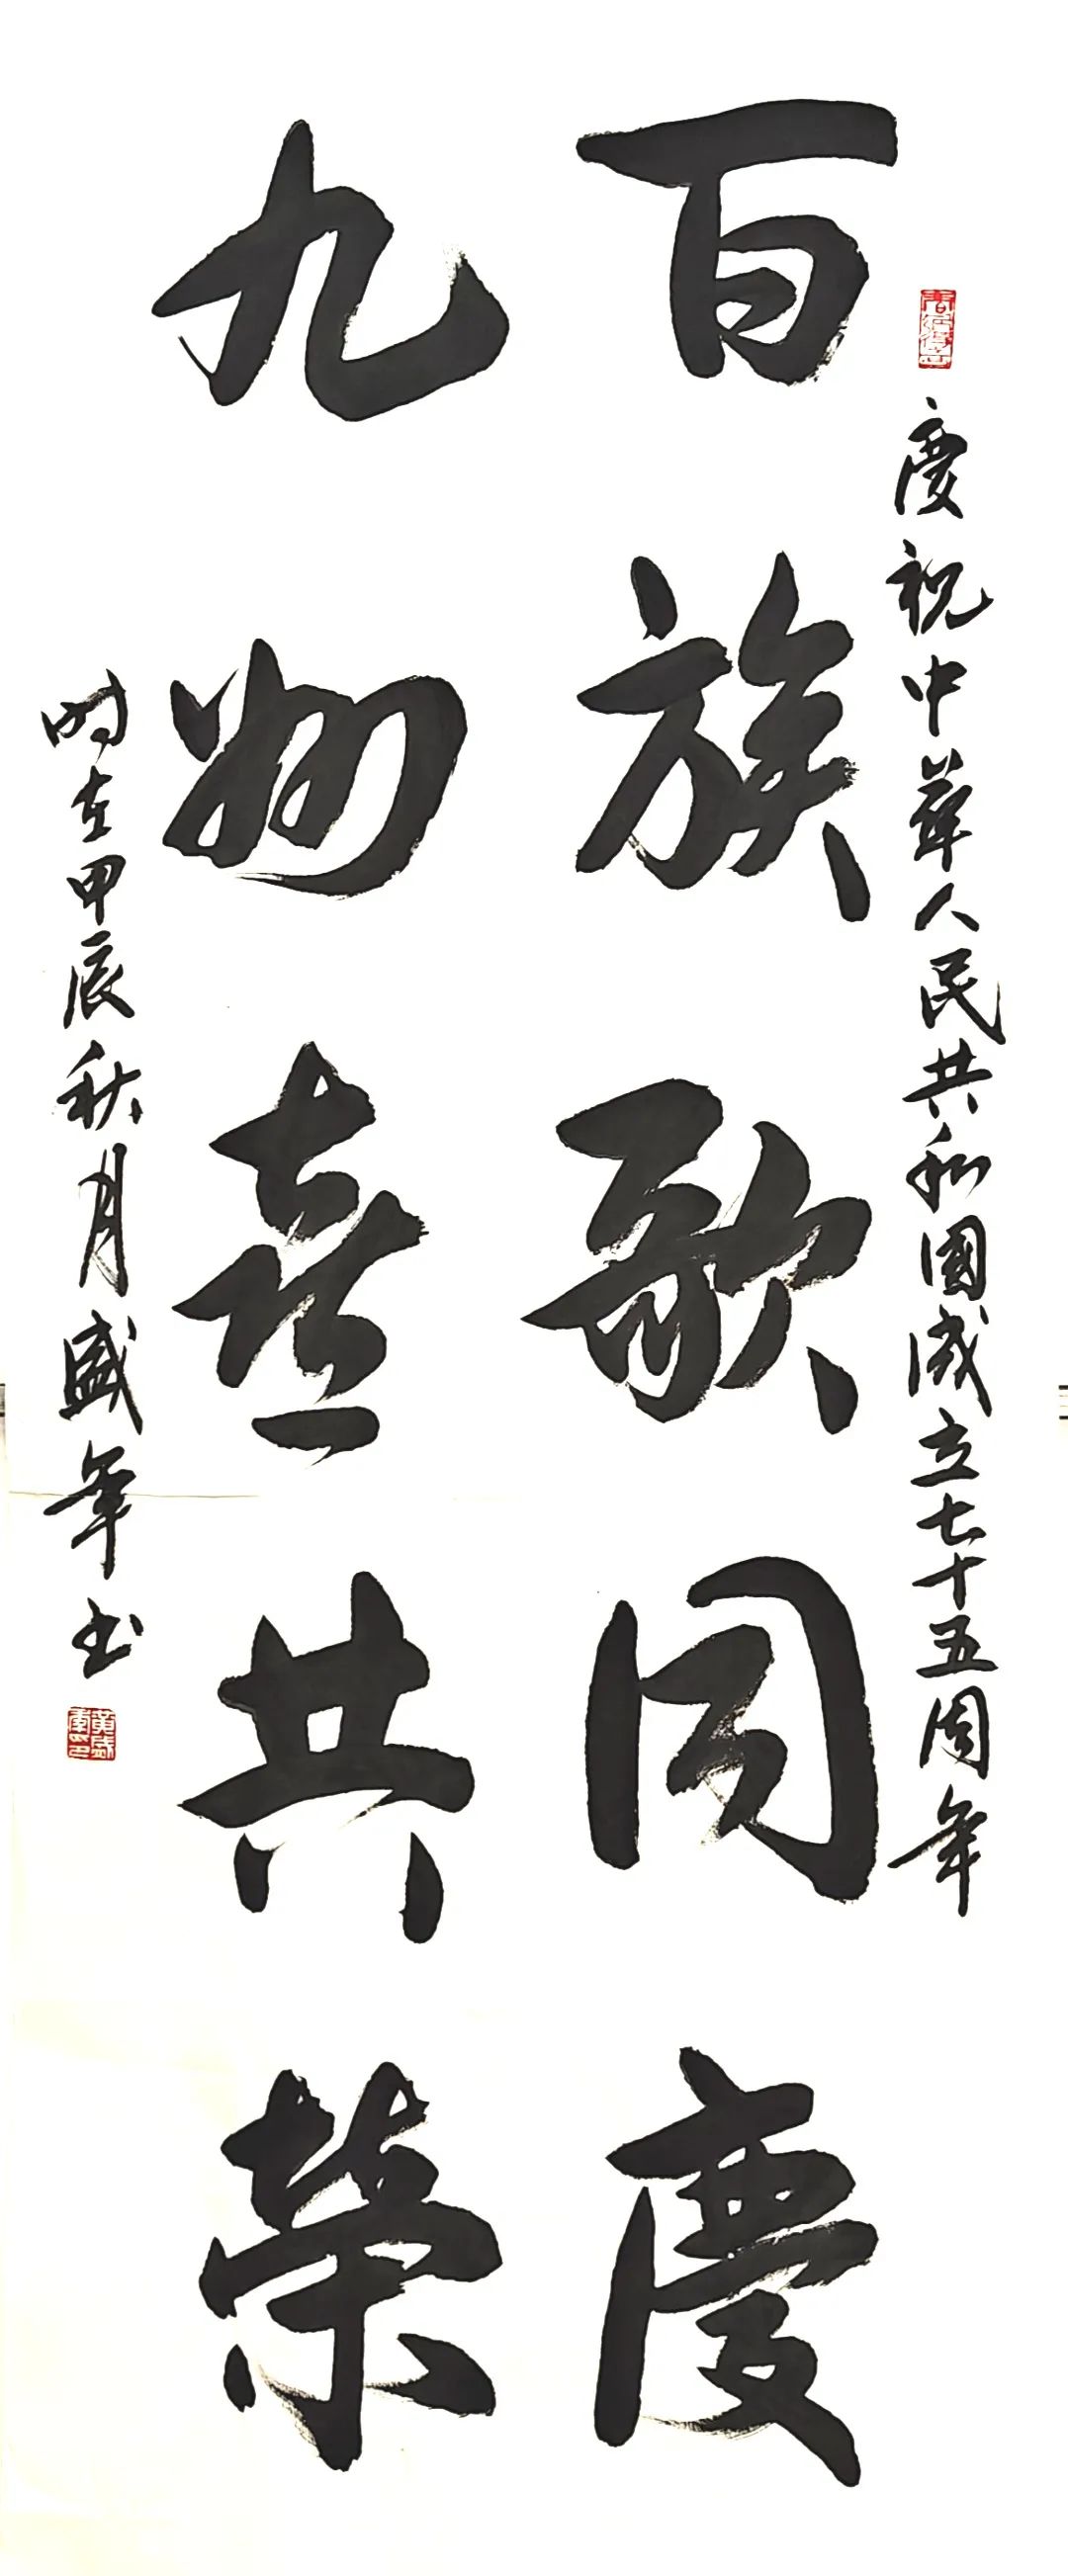 慶祝中華人民共和國成立七十五周年
百族歌同慶
九州喜共榮
時在甲辰秋月盛年书
黃盛年印